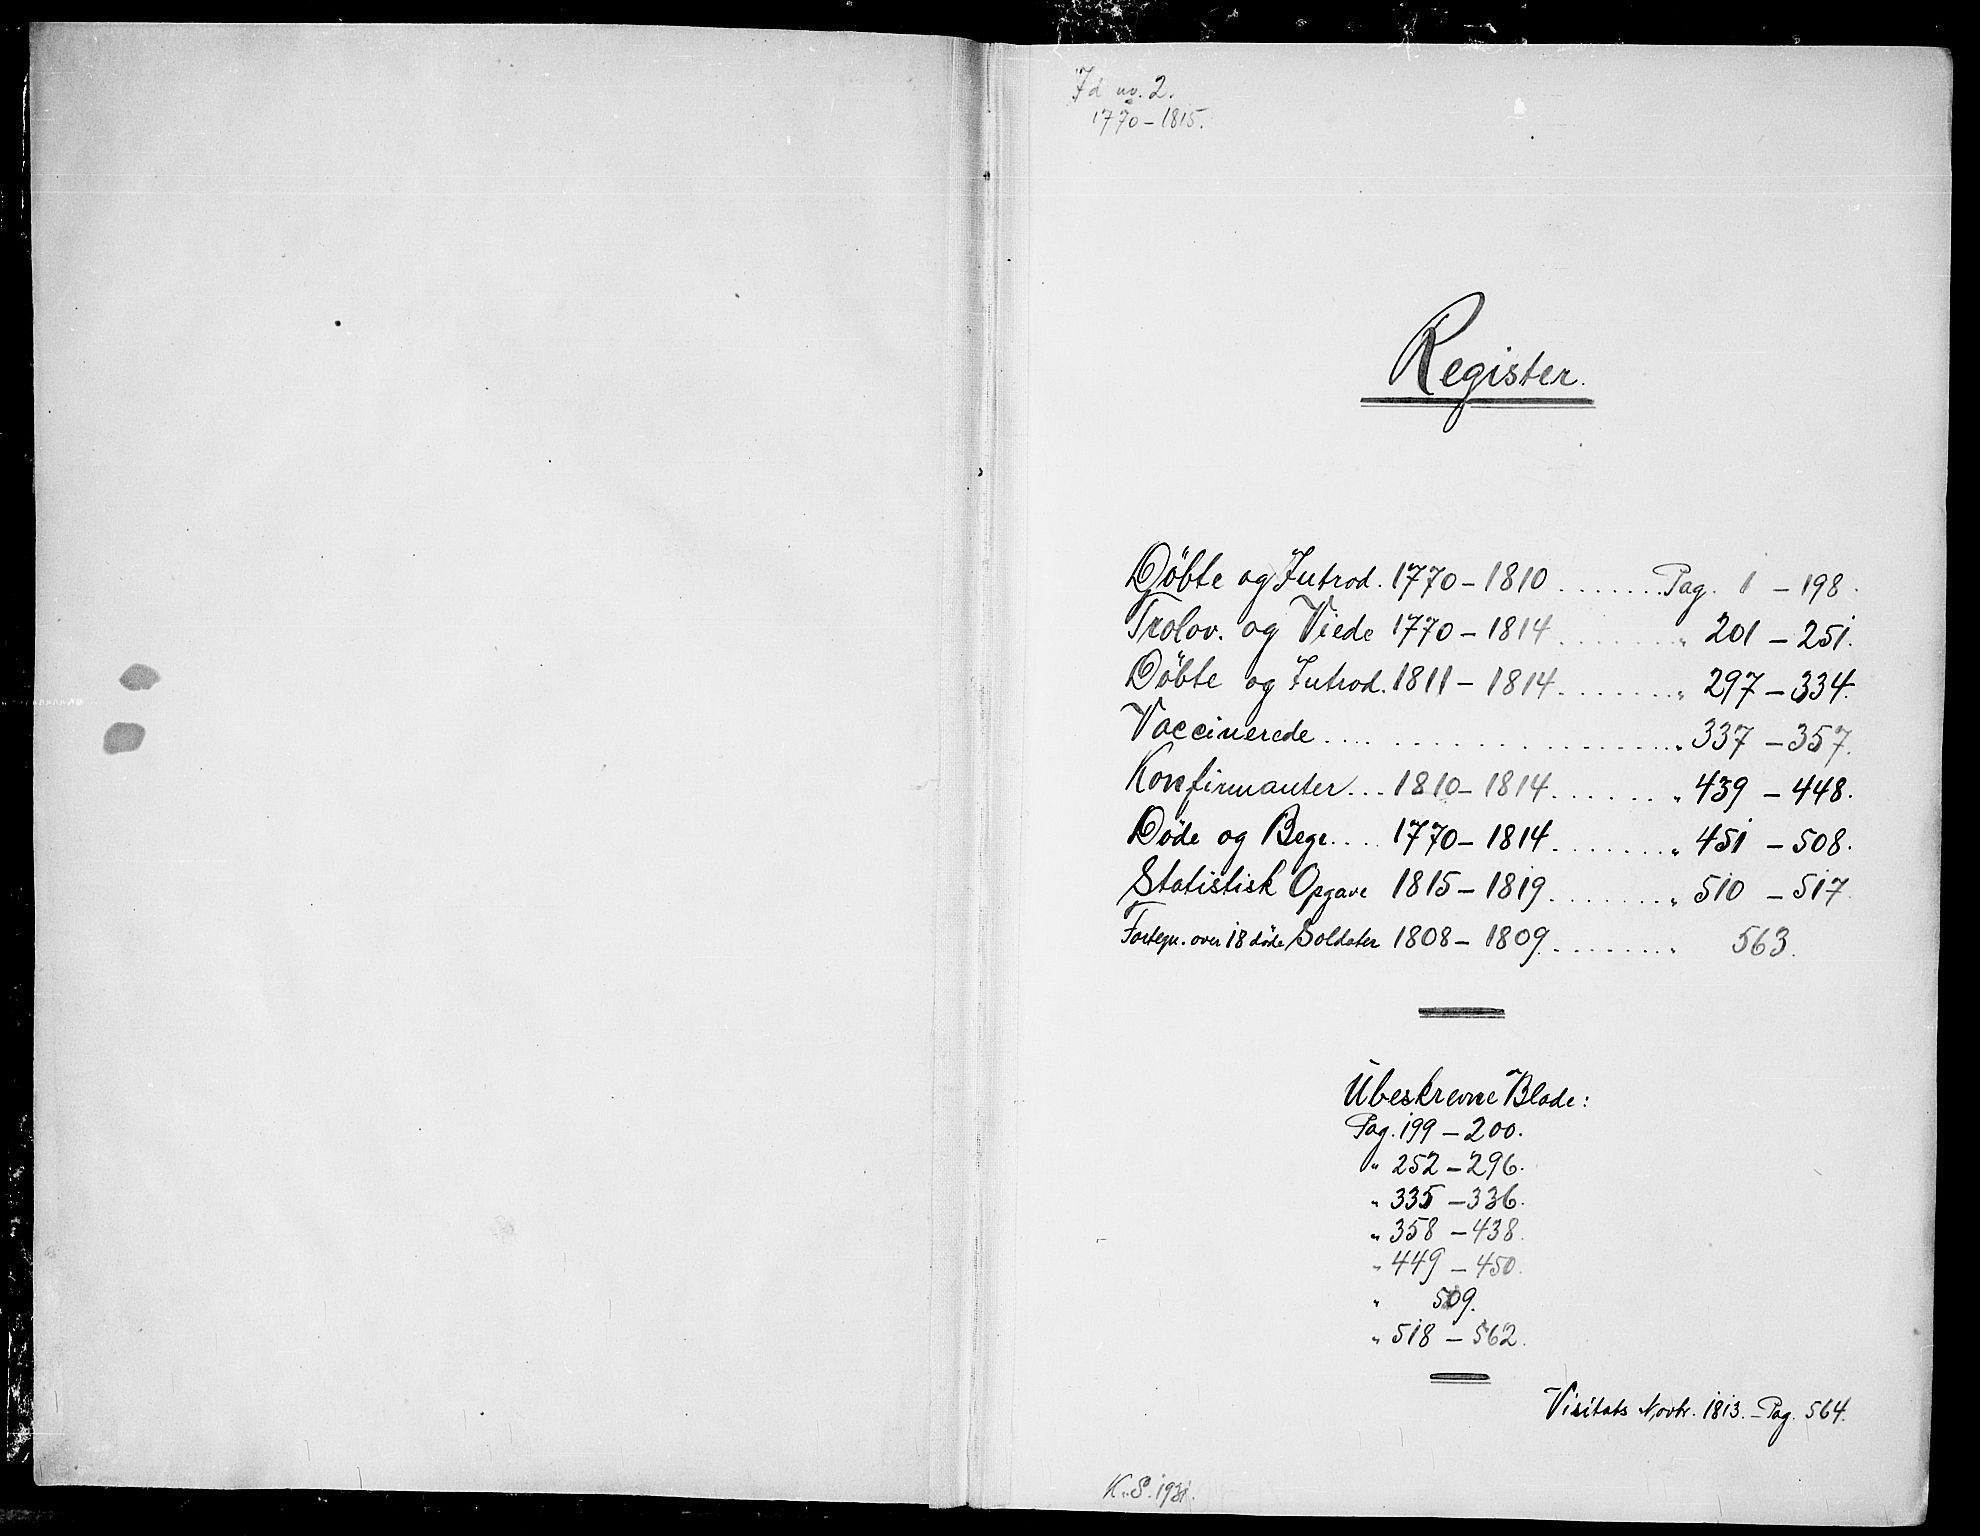 Id nr. 2.
1770-1815.
Register.
Döbte og Introd. 1770-1810 ........ Pag. 1 - 198.
Trolov. og Viede 1770-1814 ........ " 201 - 251.
Döbte og Introd. 1811 - 1814 ........ " 297 - 334.
Vaccinerede .... ................ " 337 - 357.
Konfirmanter... 1810 - 1814 ....... " 439 - 448.
Döde og Begr.... 1770 - 1814 ........ " 451 - 508.
Statistisk Opgave 1815 - 1819 ........ " 510 - 517.
Fortegn. over 18 döde Soldater 1808 - 1809 ........ " 563.
Ubeskrevne Blade:
Pag. 199 - 200.
" 252 - 296.
" 335 - 336.
" 358 - 438.
" 449 - 450.
" 509.
" 518 - 562.
Visitats Novbr. 1813. - Pag. 564.
K.S. 1931.